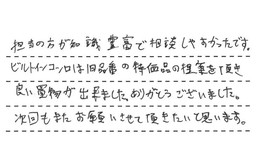 担当の方が知識豊富で相談しやすかったです。
ビルトインコンロは旧品番の特価品の提案を頂き
良い買物が出来ました。ありがとうございました。
次回もまたお願いさせて頂きたいと思います。